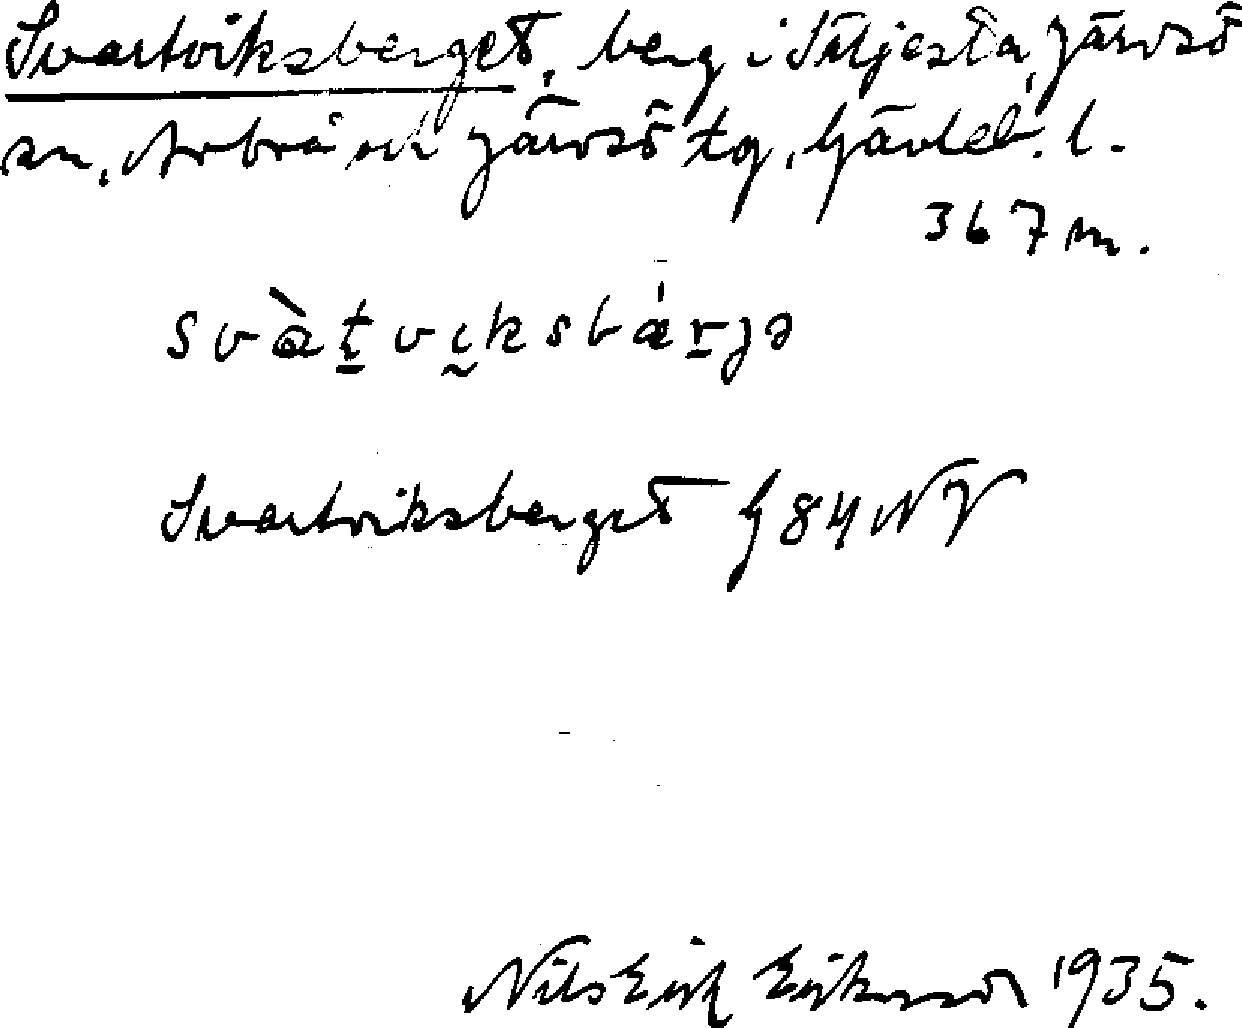 Svartviksberget, berg i Säljesta, Järvsö
sn, Arbrå och Järvsö tg, Gävleb. l.
367 m.
svàt̠vı̰ksbǽr̠jə
Svartviksberget G84NV
Nils Erik Eriksson 1935.